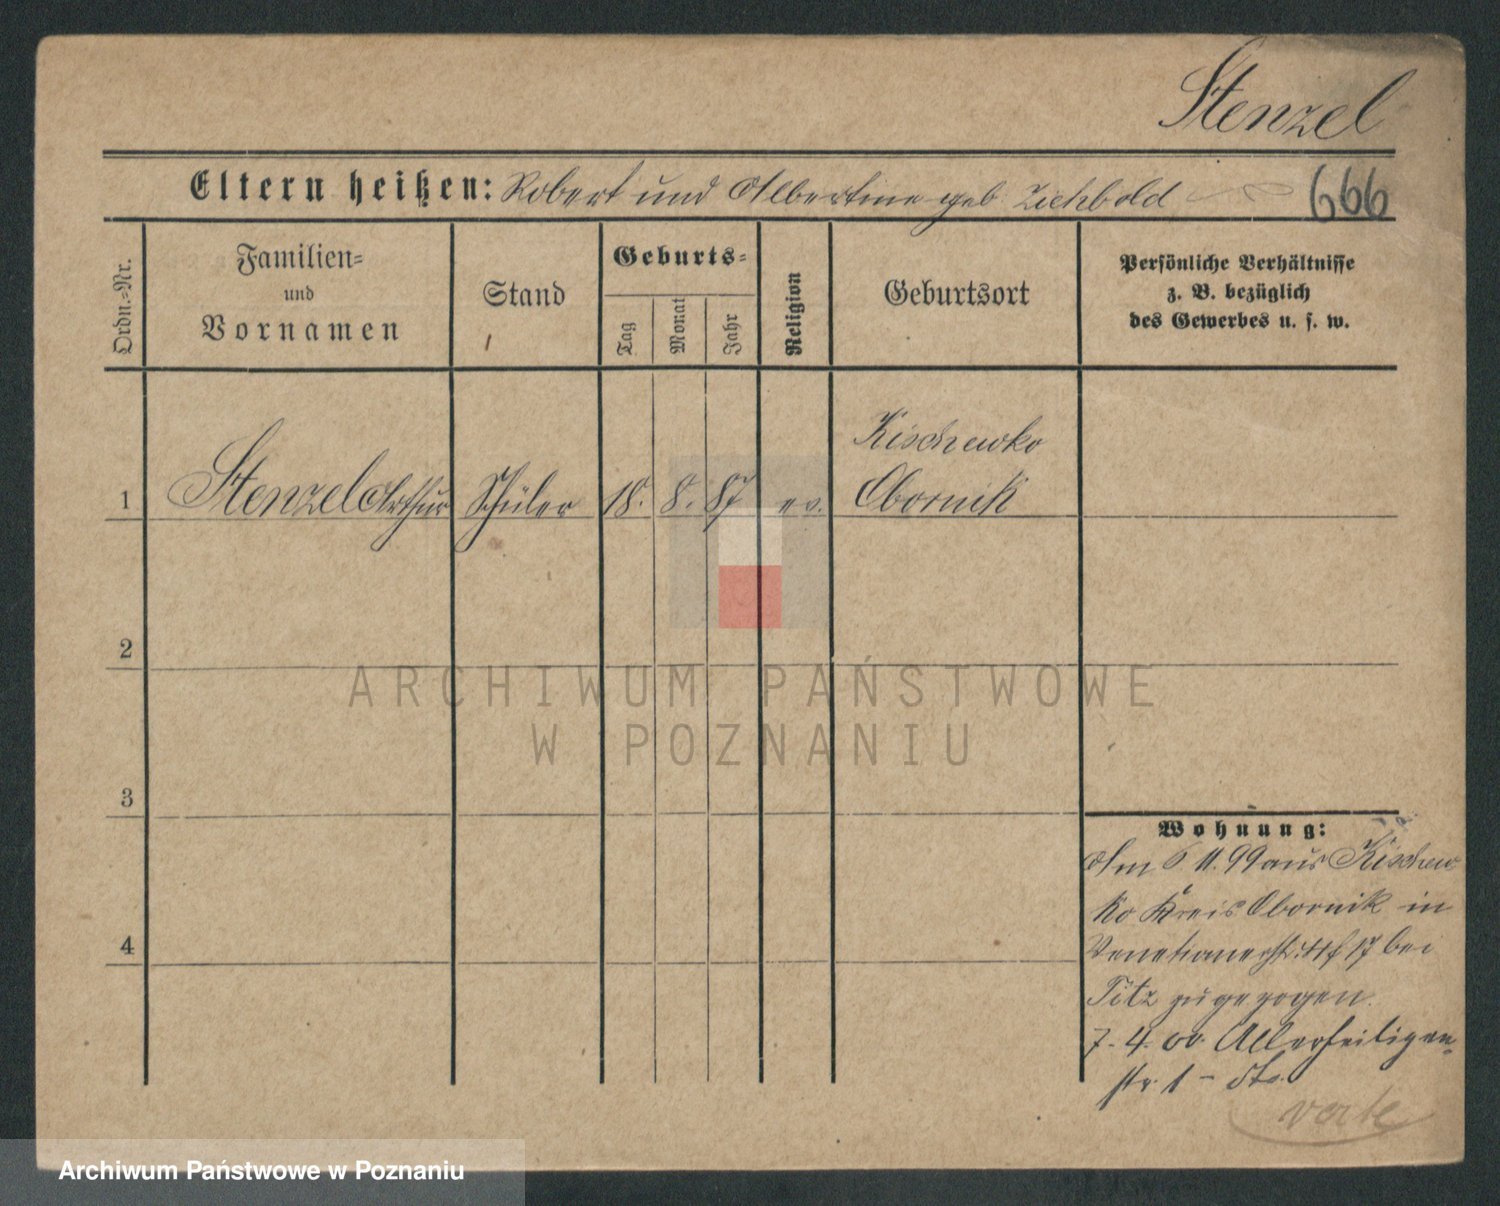 Stenzel
Eltern heißen: Robert und Albertine geb. Ziehbold
666
Ordn.-Nr.
Familien-
und
Vornamen
Stand
Geburts-
Tag
Monat
Jahr
Religion
Geburtsort
Persönliche Verhältnisse
z. B. bezüglich
des Gewerbes u. s. w.
Kischewko
1 Stenzel Arthur Schüler 18. 8. 87 ev. Obornik
2
ARCHIWUM PAŃSTWOWE
W POZNANIU
3
4
Wohnung:
Am 6 11. 99 aus Kischew
ko Kreis Obornik in
Venetianerstr. 17 bei
Titz zugezogen.
7. 4. 00. Allerheiligen-
str. 1 -
verte
Archiwum Państwowe w Poznaniu